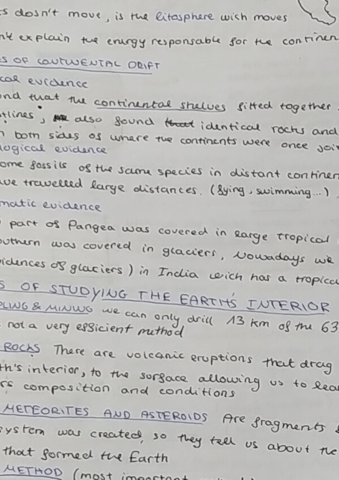 s dosn't move, is the litasphere wich moves
't explain the energy responsable for the continen
S OF CONTINENTAL DRIFT
cal evidence
nd that the continental shelves fitted together
tlines, also found identical rocks and
n both sides of where the continents were once joi
logical evidence
ome fossils of the same species in distant continen
ve travelled large distances. (flying, swimming...)
matic evidence
part of Pangea was covered in large tropical
outhern was covered in glaciers, Nowadays we
idences of glaciers) in India wich has a tropica
S OF STUDYING THE EARTH'S INTERIOR
LING & MINING we can only drill 13 km of the 63
not a very efficient method
ROCKS There are volcanic eruptions that drag
th's interior, to the surface allowing us to lea
rs composition and conditions
METEORITES AND ASTEROIDS Are fragments
system was created, so they tell us about the
that formed the Earth
METHOD (most important